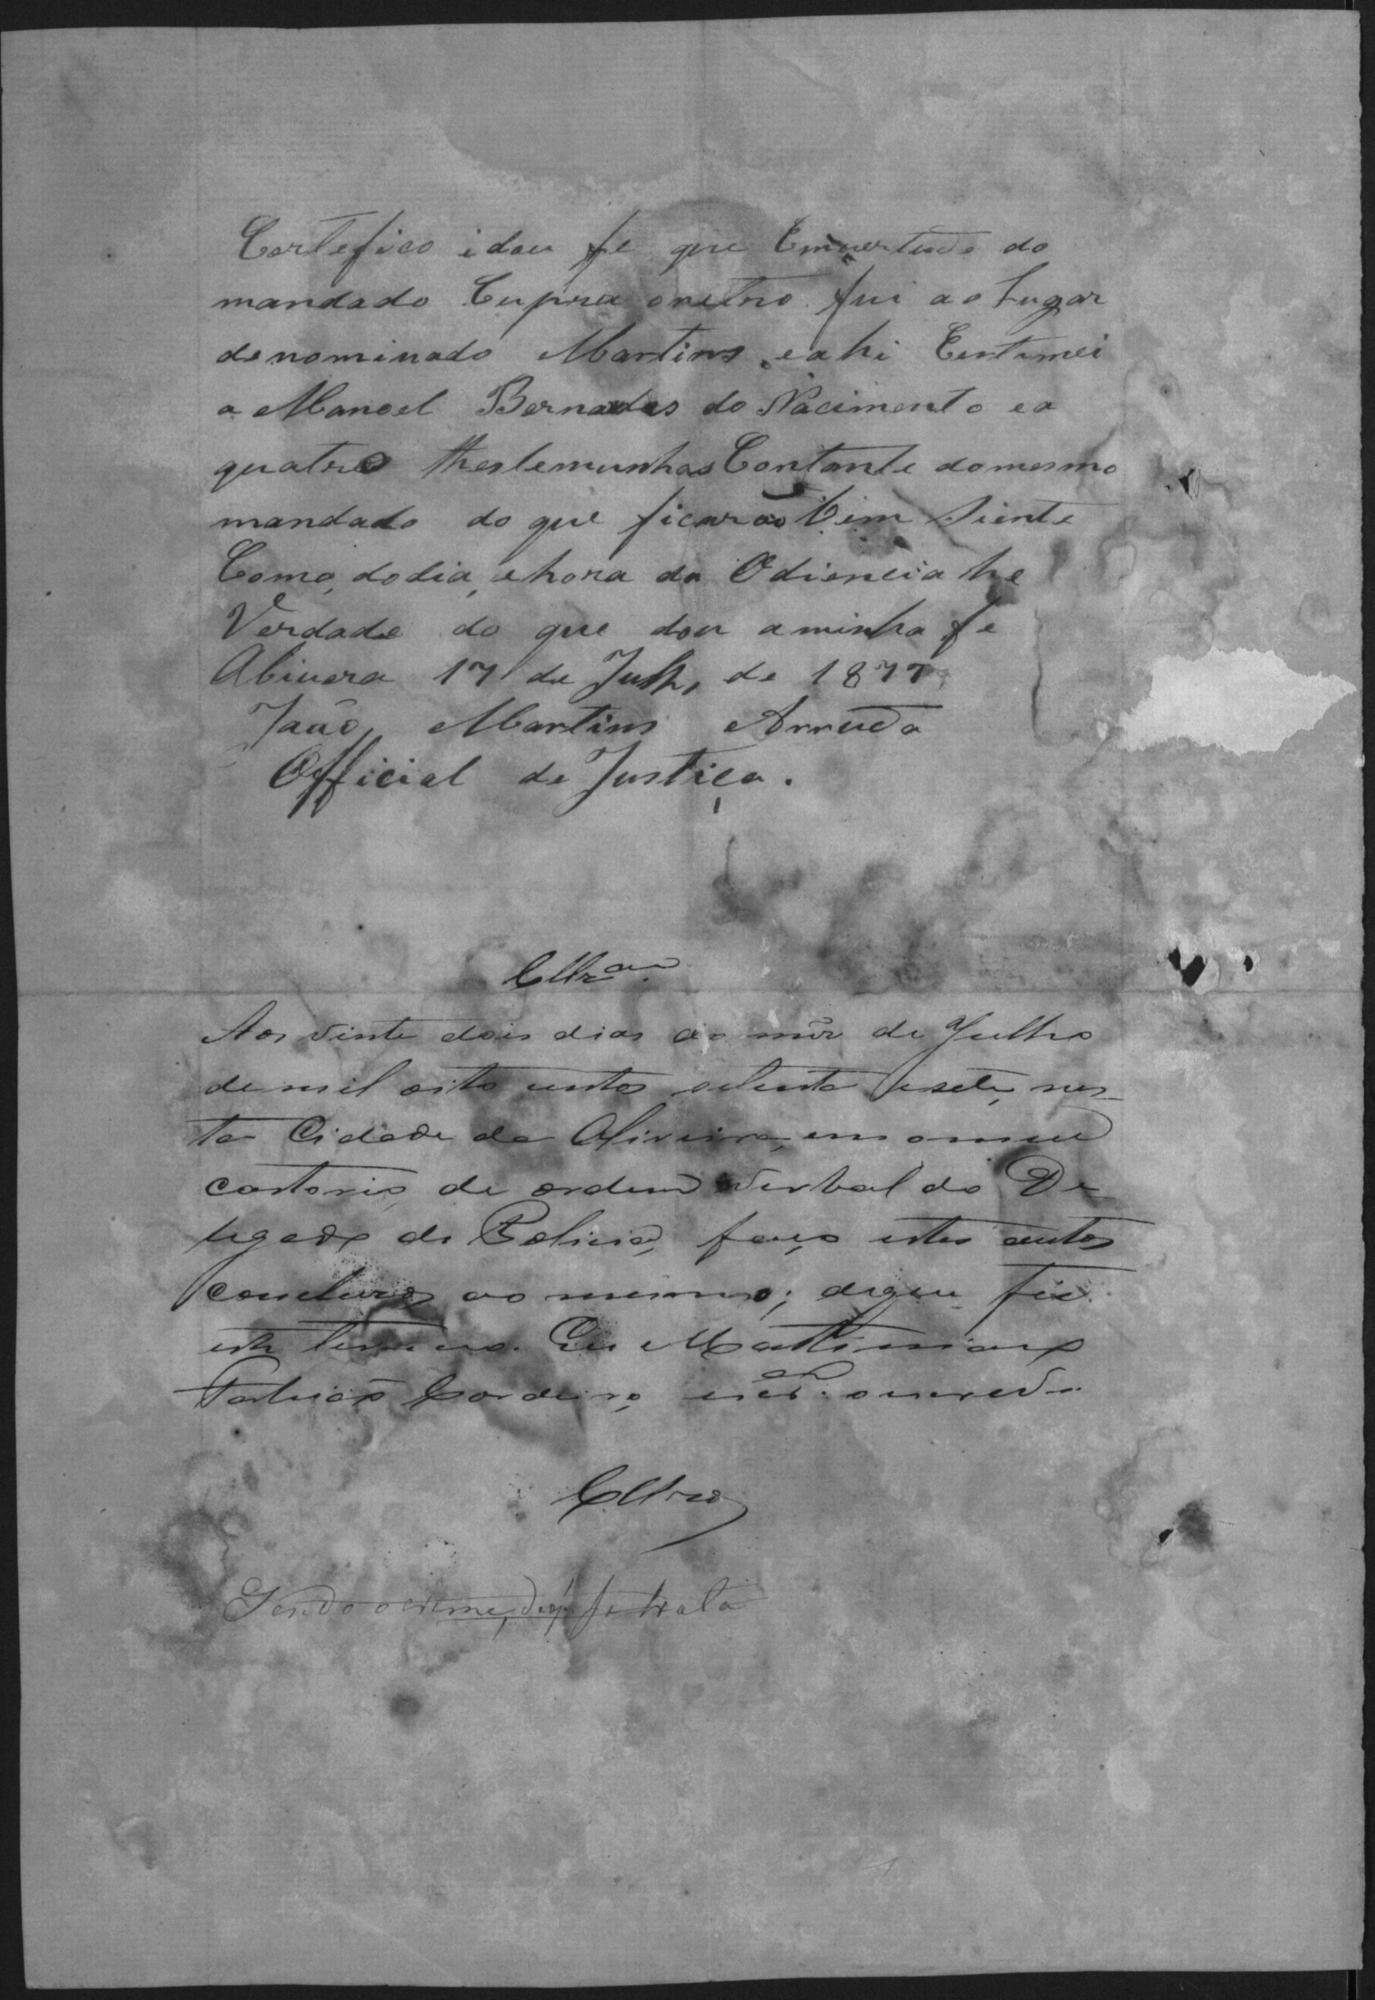 Certefico i dou fe que Emvertude do
mandado Cupra oretro fui ao Lugar
denominado Martins e ahi Centimei
a Manoel Bernades do Nacimento e a
quatro thestemunhas Contante do mesmo
mandado do que ficarão bem Siente
Como do dia, e hora da Odiencia he
Verdade do que dou a minha fe
17 de Julho de 1877
João Martins Arruda
Official de Justiça.
Aos vinte dois dias do mês de Julho
de mil oito centos setenta e sete, nes
ta Cidade da Oliveira, em o meu
cartorio, de ordem verbal do De
legado de Policia, faço estes autos
conclusos ao mesmo; do que fiz
este termo. Eu
Cordeiro, escam o escrevi.
Sendo o crime, de q' se trata